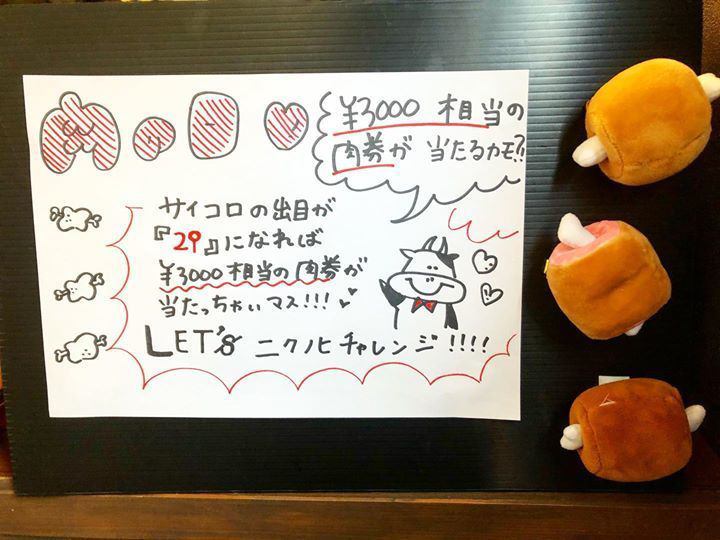 ¥3000 相当の
肉券が 当たるカモ!?
サイコロの出目が
『29』になれば
¥3000 相当の肉券が
当たっちゃいマス!!!
LET'S ニクノヒチャレンジ!!!!